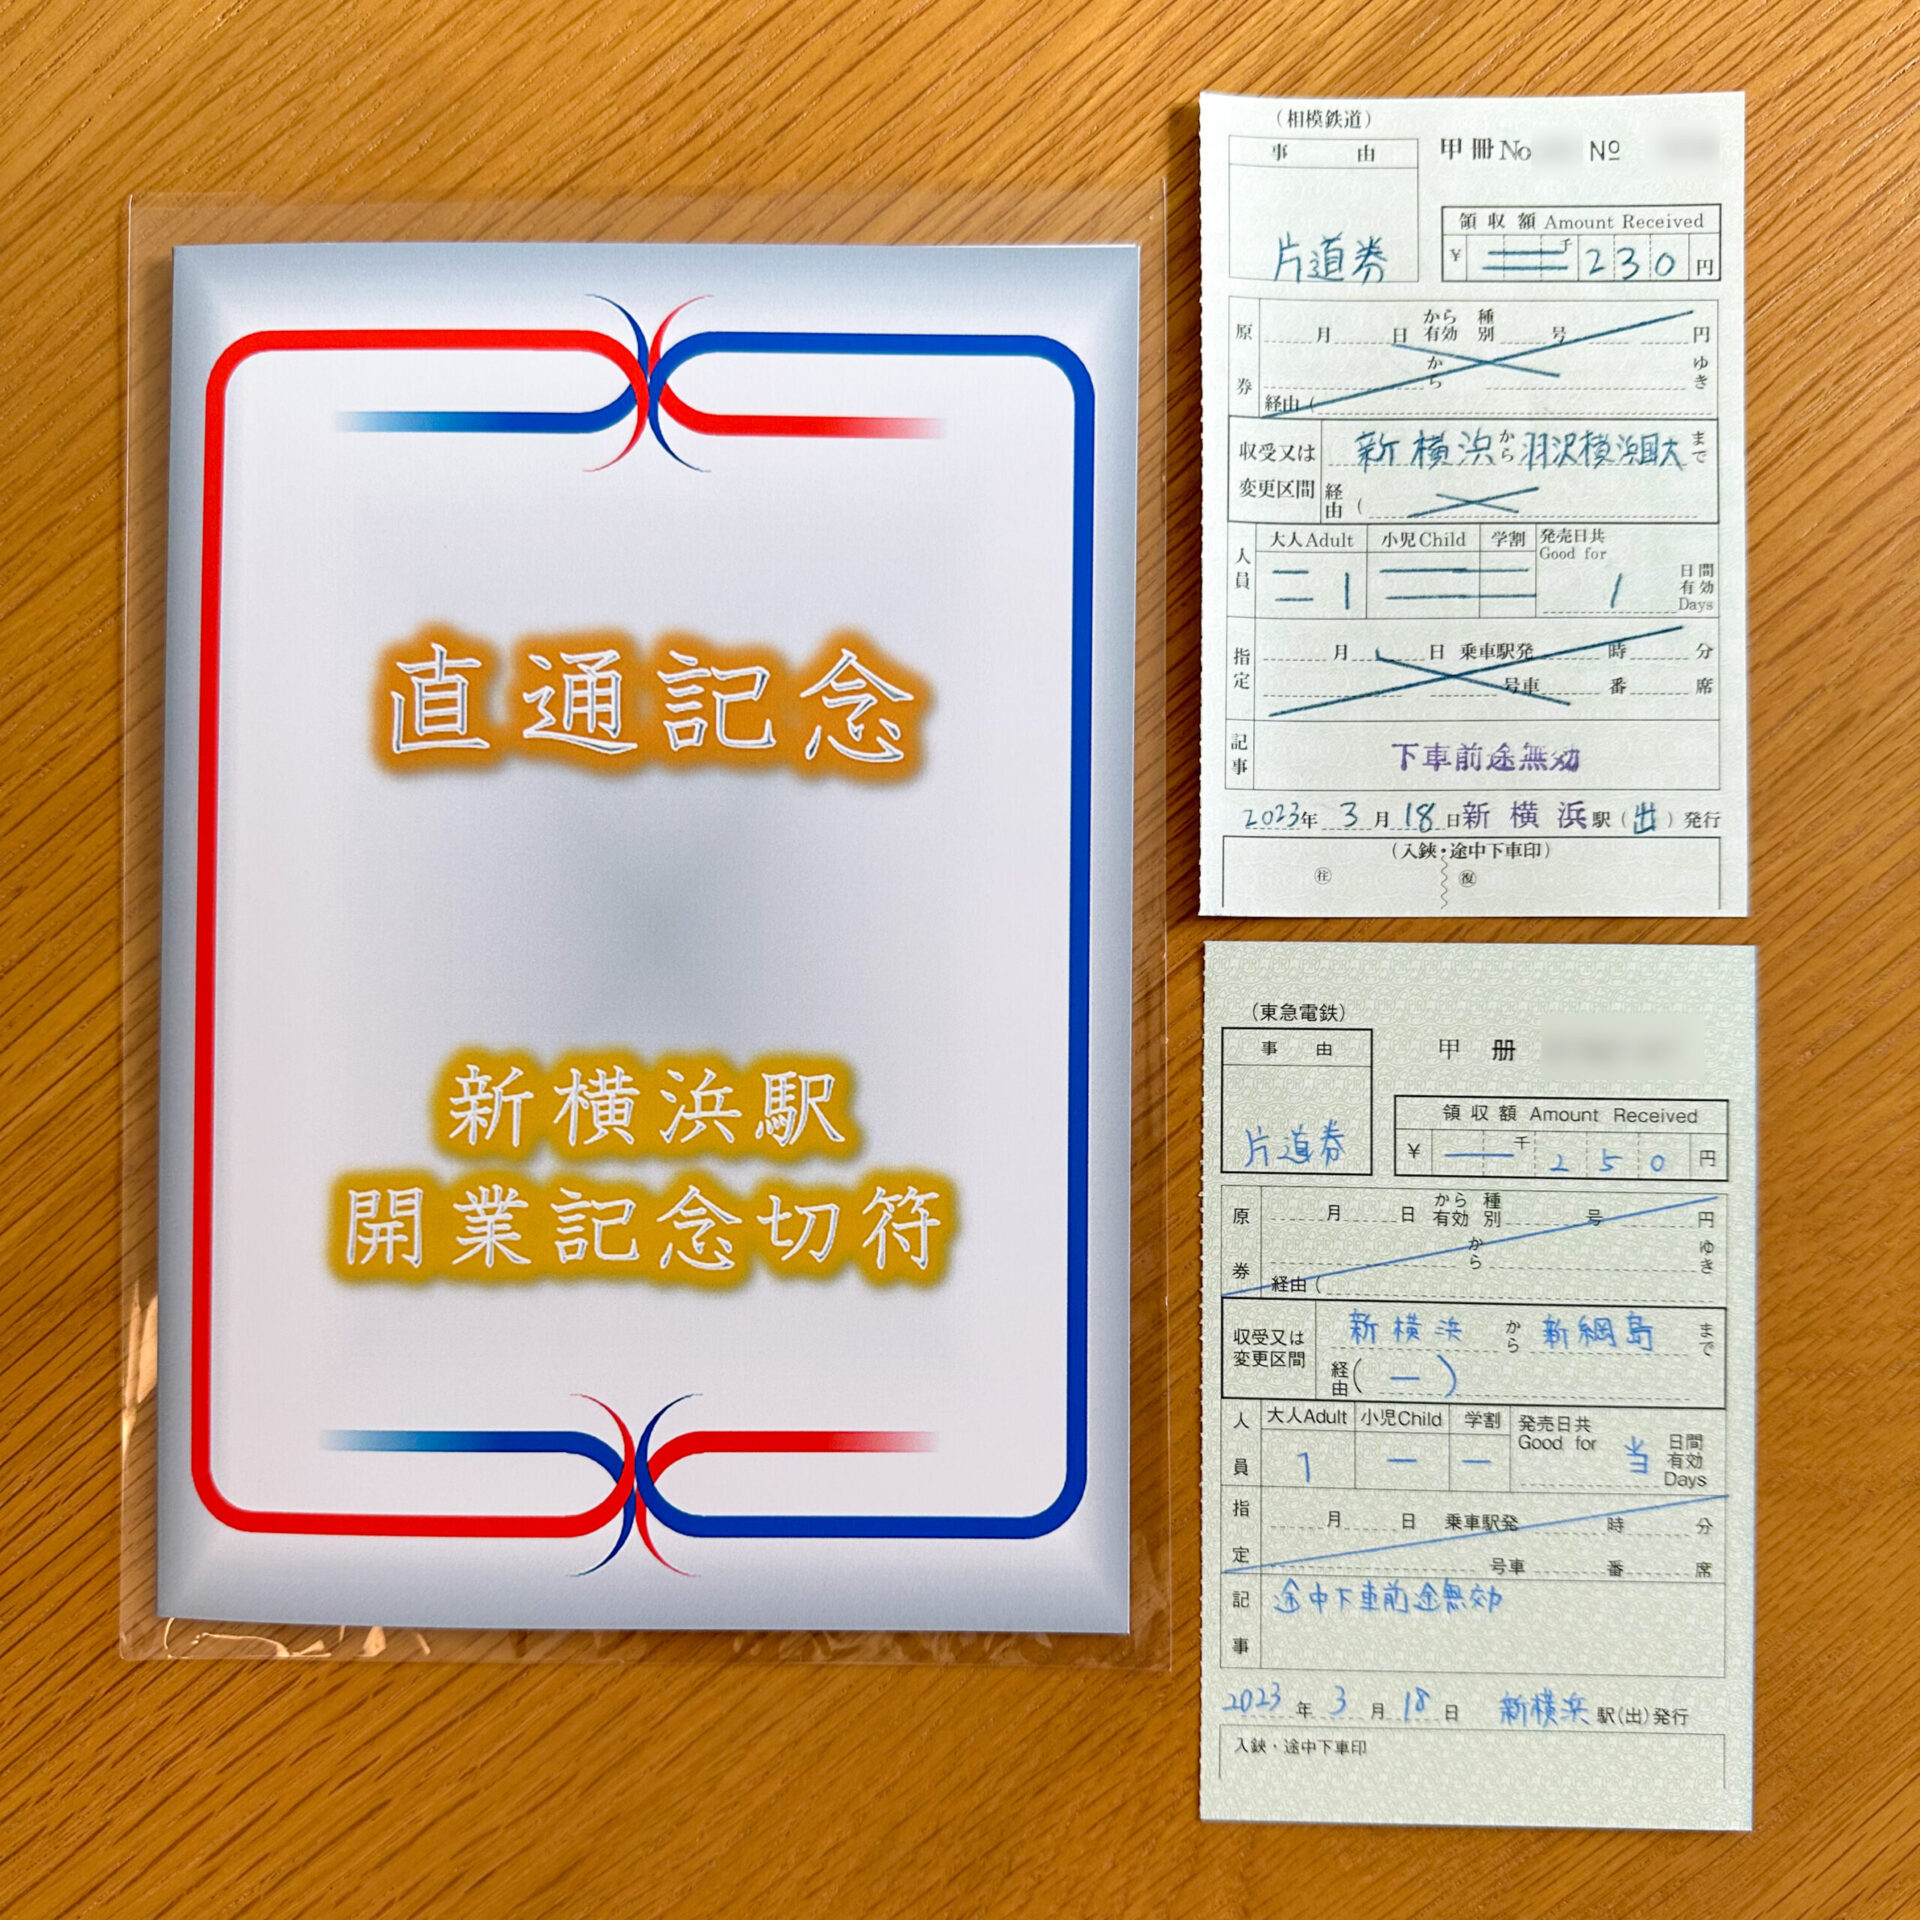 直通記念
新横浜駅
開業記念切符
(相模鉄道)
事由
甲冊No
No
片道券
領収額 Amount Received
¥ 千230円
原券
月 日から有効 種別 号 円
から ゆき
経由(
収受又は変更区間
新横浜から羽沢横浜国大まで
経由(
人員
大人Adult 小児Child 学割 発売日共 Good for
1 1 日間有効 Days
指定
月 日 乗車駅発 時 分
号車 番 席
記事
下車前途無効
2023年 3月 18日 新横浜駅(出)発行
(入鋏・途中下車印)
往 復
(東急電鉄)
事由
甲冊
片道券
領収額 Amount Received
¥ 千250円
原券
月 日から有効 種別 号 円
から ゆき
経由(
収受又は変更区間
新横浜から新綱島まで
経由(ー)
人員
大人Adult 小児Child 学割 発売日共 Good for
1 ー ー 当 日間有効 Days
指定
月 日 乗車駅発 時 分
号車 番 席
記事
途中下車前途無効
2023年 3月 18日 新横浜駅(出)発行
入鋏・途中下車印